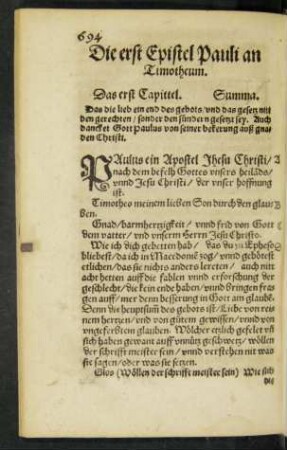 694
Die erst Epistel Pauli an
Timotheum.
Das erst Capittel. Summa.
Das die lieb ein end des gebots vnd das gesetz nitt
den gerechten / sonder den sündern gesetzt sey. Auch
dancket Gott Paulus von seiner bekerung auß gna/
den Christi.
PAulus ein Apostel Jhesu Christi / A
nach dem befelh Gottes vnsers heilāds/
vnnd Jesu Christi / der vnser hoffnung
ist.
Timotheo meinem lieben Son durch den glau/ B
ben.
Gnad / barmhertzigkeit / vnnd frid von Gott
dem vatter / vnd vnserm Herrn Jesu Christo.
Wie ich dich gebetten hab / das du zu Epheso
bliebest / da ich in Macedoniē zog / vnnd gebötest
etlichen / das sie nichts anders lereten / auch nitt
acht hetten auff die fablen vnnd erforschung der
geschlecht / die kein ende haben / vnnd bringen fra
gen auff / mer denn besserung in Gott am glaubē.
Denn die heuptsum des gebots ist / Liebe von rei
nem hertzen / vnd von gutem gewissen / vnnd von
vngeferbtem glauben. Wölcher etlich gefelet vn̄
sich haben gewant auff vnnütz geschwetz / wöllen
der schrifft meister sein / vnnd verstehen nit was
sie sagen / oder was sie setzen.
Glos (Wöllen der schrifft meister sein) Wie sich
die